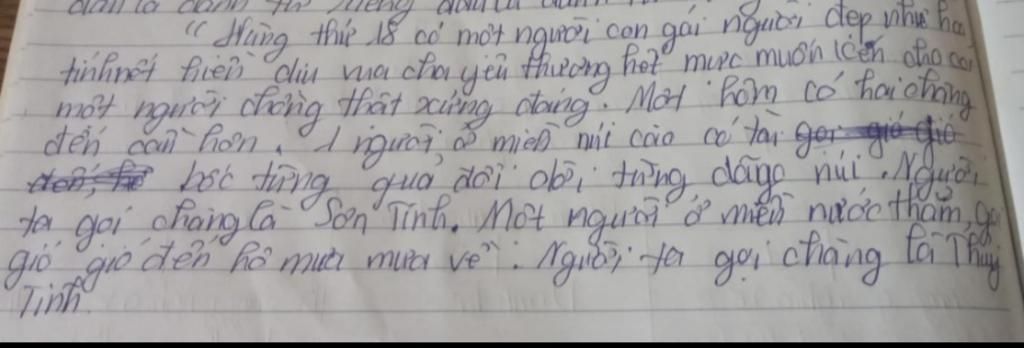 "Hùng thứ 18 có một người con gái người đẹp như hoa
tính nết hiền dịu vua cha yêu thương hết mực muốn kén cho con
một người chồng thật xứng đáng. Một hôm có hai chàng
đến cầu hôn. 1 người ở miền núi cao có tài gọi gió gió
đến, bốc từng quả đồi dời từng dãy núi. Người
ta gọi chàng là Sơn Tinh. Một người ở miền nước thẳm, gọi
gió gió đến hô mưa mưa về". Người ta gọi chàng là Thủy
Tinh.